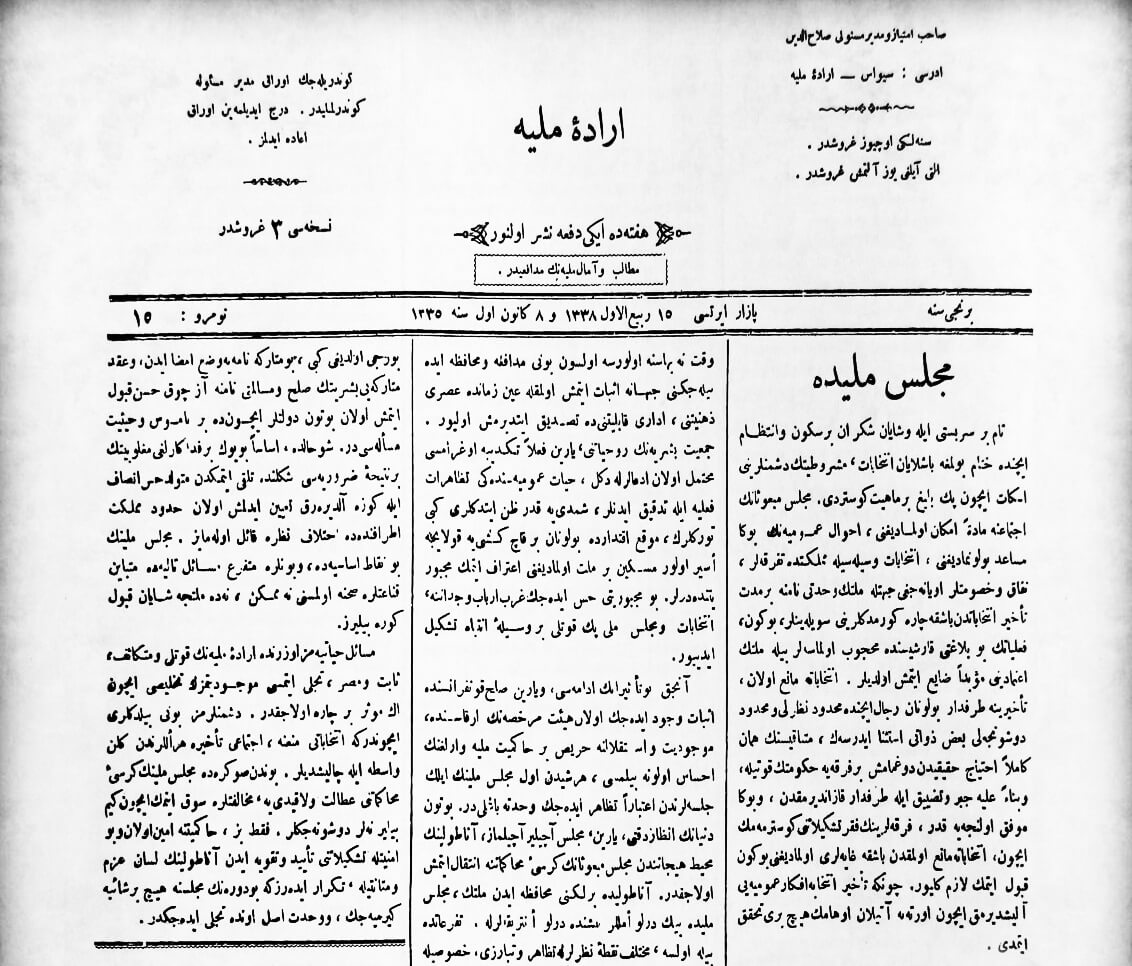 صاحب امتياز و مدير مسئولى صلاح‌الدين
ادرسى : سيواس — ارادۀ مليه
سنه‌لكى اوچيوز غروشدر .
التى آيلغى يوز آلتمش غروشدر .
ارادۀ مليه
هفته‌ده ايكى دفعه نشر اولنور
مطالب و آمال مليه‌نك مدافعيدر .
كوندريله‌جك اوراق مدير مسئوله
كوندرلمليدر . درج ايديلمه‌ين اوراق
اعاده ايدلمز .
نسخه‌سى ٣ غروشدر
برنجى سنه
پازار ايرتسى ١٥ ربيع‌الاول ١٣٣٨ و ٨ كانون اول سنه ١٣٣٥
نومرو : ١٥
مجلس مليده
تام بر سربستى ايله وشايان شكران برسكون وانتظام
ايچنده ختام بولمغه باشلايان انتخابات، مشروطيتك دشمنلرينى
اسكات ايچون پك بليغ برماهيت كوستردى. مجلس مبعوثانك
اجتماعنه مادةً امكان اولماديغنى ، احوال عموميه‌نك بوكا
مساعد بولونماديغنى ، انتخابات وسيله‌سيله مملكتده تفرقه‌لر ،
نفاق وخصومتلر اويانه‌جغى جهتله ملتك وحدتى نامنه برمدت
تأخير انتخاباتدن باشقه چاره كورمدكلرينى سويله‌ينلر، بوكون،
فعلياتك بو بلاغتى قارشيسنده محجوب اولماسه‌لر بيله ملتك
اعتمادينى مؤبداً ضايع ايتمش اولديلر . انتخاباته مانع اولان ،
تأخيرينه طرفدار بولونان رجال ايچنده محدود نظرلى ومحدود
دوشونجه‌لى بعض ذواتى استثنا ايدرسه‌ك ، متباقيسنك همان
كاملاً احتياج حقيقيدن دوغمامش برفرقه‌يه حكومتك قوتيله،
وبناءً عليه جبر وتضييق ايله طرفدار قازانديرمقدن ، وبوكا
موفق اولنجه‌يه قدر ، فرقه‌لرينك فقر تشكيلاتنى كوسترمه‌مك
ايچون، انتخاباته مانع اولمقدن باشقه غايه‌لرى اولماديغنى بوكون
قبول ايتمك لازم كليور. چونكه تأخير انتخابه افكارعموميه‌يى
آليشديرمق ايچون اورته‌يه آتيلان اوهامك هيچ برى تحقق
ايتمدى .
وقت نه بهاسنه اولورسه اولسون بونى مدافعه ومحافظه ايده
بيله‌جكنى جهانه اثبات ايتمش اولمقله عين زمانده عصرى
ذهنيتنى ، ادارى قابليتنى‌ده تصديق ايتديرمش اوليور .
جمعيت بشريه‌نك روحياتنى، يارين فعلاً تكذيبه اوغرامسى
محتمل اولان ادعالرله دكل ، حيات عموميه‌سنده‌كى تظاهرات
فعليه ايله تدقيق ايدنلر ، شمدى‌يه قدر ظن ايتدكلرى كبى
توركلرك ، موقع اقتدارده بولونان بر قاچ كشى‌يه قولايجه
أسير اولور مسكين بر ملت اولماديغنى اعتراف ايتمك مجبور
يتنده‌درلر. بو مجبوريتى حس ايده‌جك غرب ارباب وجداننه،
انتخابات ومجلس ملى پك قوتلى بر وسيلۀ انتباه تشكيل
ايدييور.
آنجق بوتأثيراتك ادامه‌سى ، ويارين صلح قونفرانسنده
اثبات وجود ايده‌جك اولان هيئت مرخصه‌نك ارقاسنده،
موجوديت واستقلالنه حريص بر حاكميت مليه وارلغنك
احساس اولونه بيلمسى ، هرشيدن اول مجلس ملينك ايلك
جلسه‌لرندن اعتباراً تظاهر ايده‌جك وحدته باغلى‌در. بوتون
دنيانك انظاردقتى ، يارين، مجلس آچيلير آچيلماز، آناطولينك
محيط هيجانندن مجلس مبعوثانك كرسئ محاكماتنه انتقال ايتمش
اولاجقدر. آناطوليده برلكنى محافظه ايدن ملتك ، مجلس
مليده بيك درلو أمللر پشنده درلو أنتريقه‌لرله . تفرعاتده
بيله اولسه ، مختلف نقطۀ نظرلرله تظاهر وتبارزى، خصوصيله
بورجى اولديغى كبى ، بومتاركه نامه‌يه وضع امضا ايدن، وعقد
متاركه‌يى بشريتك صلح ومسالمتى نامنه آز چوق حسن قبول
ايتمش اولان بوتون دولتلر ايچون‌ده بر ناموس وحيثيت
مسأله‌سى‌در. شو حالده ، اساساً بويوك بر فداكارلغى مغلوبيتك
برنتيجۀ ضروريه‌سى شكلنده تلقى ايتمكدن متولد حس انصاف
ايله كوزه آلديره‌رق تعيين ايدلمش اولان حدود مملكت
اطرافنده‌ده اختلاف نظره قائل اوله‌مايز. مجلس ملينك
بو نقاط اساسيه‌ده ، وبونلره متفرع مسائل تاليه‌ده متباين
قناعتلره صحنه اولمسنى نه ممكن ، نه‌ده ملتجه شايان قبول
كوره بيليرز.
مسائل حياتيه‌مز اوزرنده ارادۀ مليه‌نك قوتلى ومتكاثف،
ثابت ومصر ، تجلى ايتمسى موجوديتمزك تخليصى ايچون
اك موثر بر چاره اولاجقدر . دشمنلرمز بونى بيلدكلرى
ايچوندركه انتخاباتى منعه ، اجتماعى تأخيره هراللرندن كلن
واسطه ايله چاليشديلر . بوندن صوكره‌ده مجلس ملينك كرسئ
محاكماتنى عطالت ولاقيدى‌يه ، مخالفتلره سوق ايتمك ايچون كيم
بيلير نه‌لر دوشونه‌جكلر . فقط بز ، حاكميتنه امين اولان وبو
امنيتله تشكيلاتنى تأييد وتقويه ايدن آناطولينك لسان عزم
ومتانتيله ، تكرار ايده‌رزكه بودوره‌نك مجلسنه هيچ برشائبه
كيرميه‌جك ، ووحدت اصل اونده تجلى ايده‌جكدر.